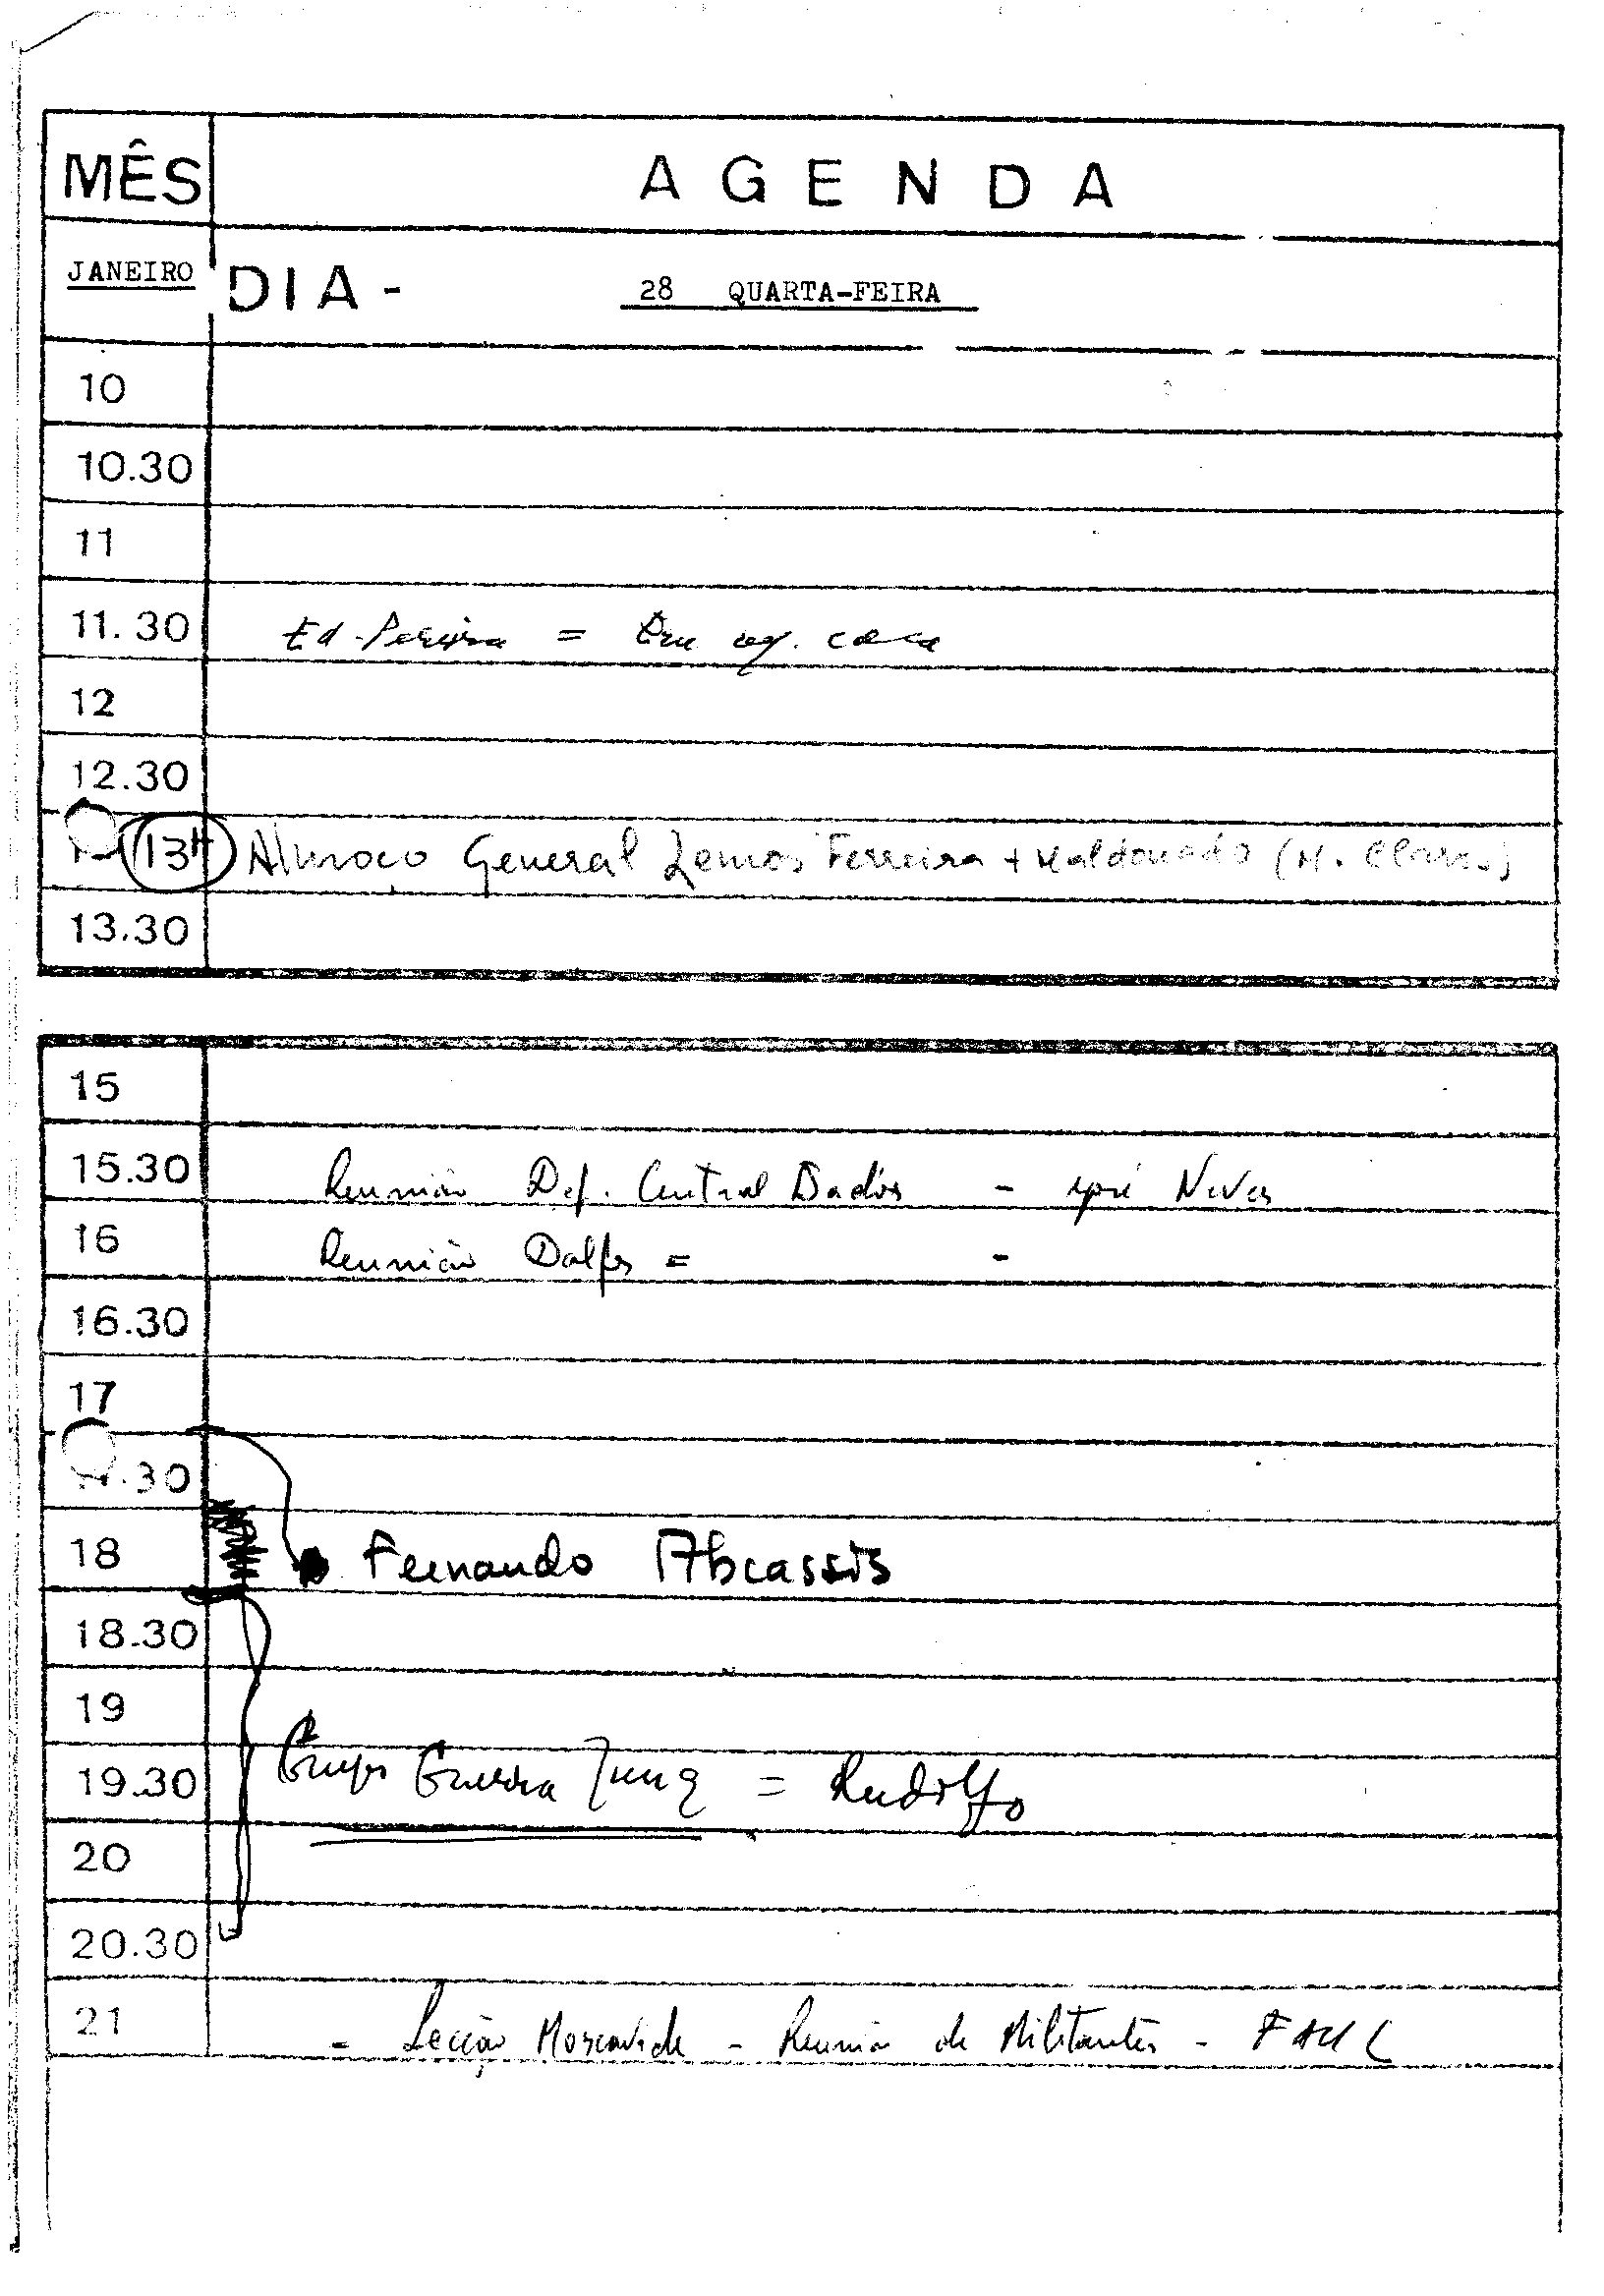 MÊS AGENDA
JANEIRO DIA - 28 QUARTA-FEIRA
10
10.30
11
11.30 Ed. Pereira =
12
12.30
13H Almoço General Lemos Ferreira + Maldonado (M.
13.30
15
15.30 Reunião Def. Central Dados -
16 Reunião = -
16.30
17
.30
18 Fernando Abcassis
18.30
19
19.30 Grupo Guerra = Rudolfo
20
20.30
21 - Secção Moscavide - Reunião de Militantes - FAUL